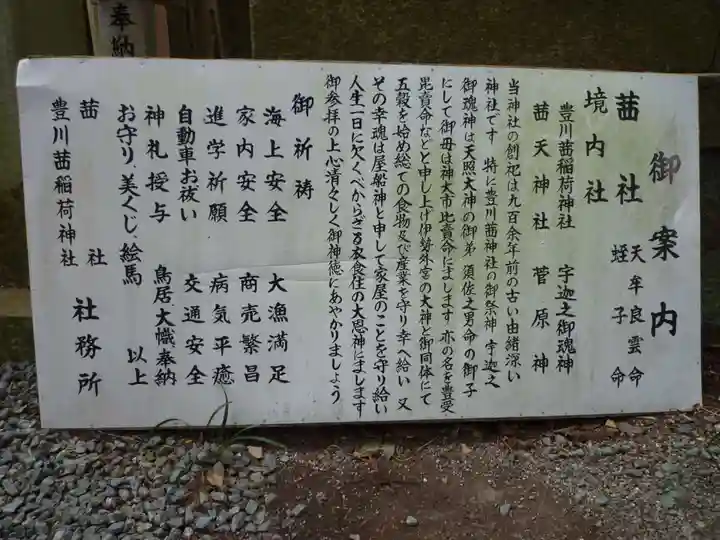 奉納
御案内
茜社 天牟良雲命
蛭子命
境内社
豊川茜稲荷神社 宇迦之御魂神
茜天神社 菅原神
当神社の創祀は九百余年前の古い由緒深い
神社です 特に豊川茜神社の御祭神 宇迦之
御魂神は天照大神の御弟 須佐之男命の御子
にして御母は神大市比賣命にまします 亦の名を豊受
毘賣命などと申し上げ伊勢外宮の大神と御同体にて
五穀を始め総ての食物及び産業を守り幸へ給い 又
その幸魂は屋船神と申して家屋のことを守り給い
人生一日に欠くべからざる衣食住の大恩神にまします
御参拝の上心清々しく御神徳にあやかりましょう
御祈祷
海上安全 大漁満足
家内安全 商売繁昌
進学祈願 病気平癒
自動車お祓い 交通安全
神札授与 鳥居、大幟奉納
お守り、美くじ、絵馬 以上
茜社
豊川茜稲荷神社 社務所